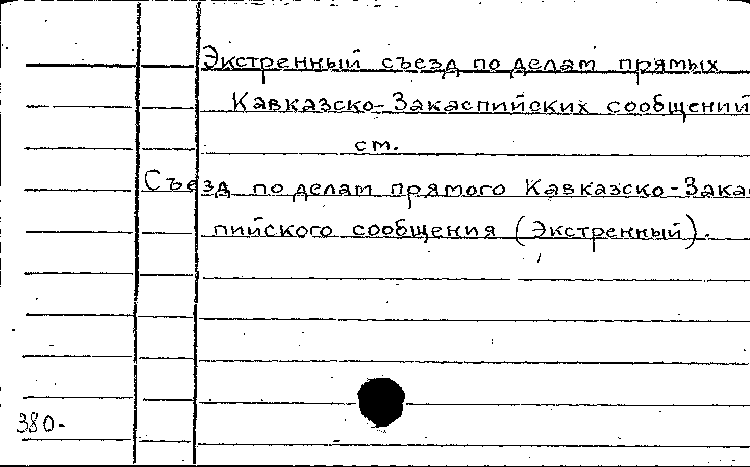 Экстренный съезд по делам прямых
Кавказско-Закаспийских сообщений
см.
Съезд по делам прямого Кавказско-Зака
пийского сообщения (Экстренный).
380-